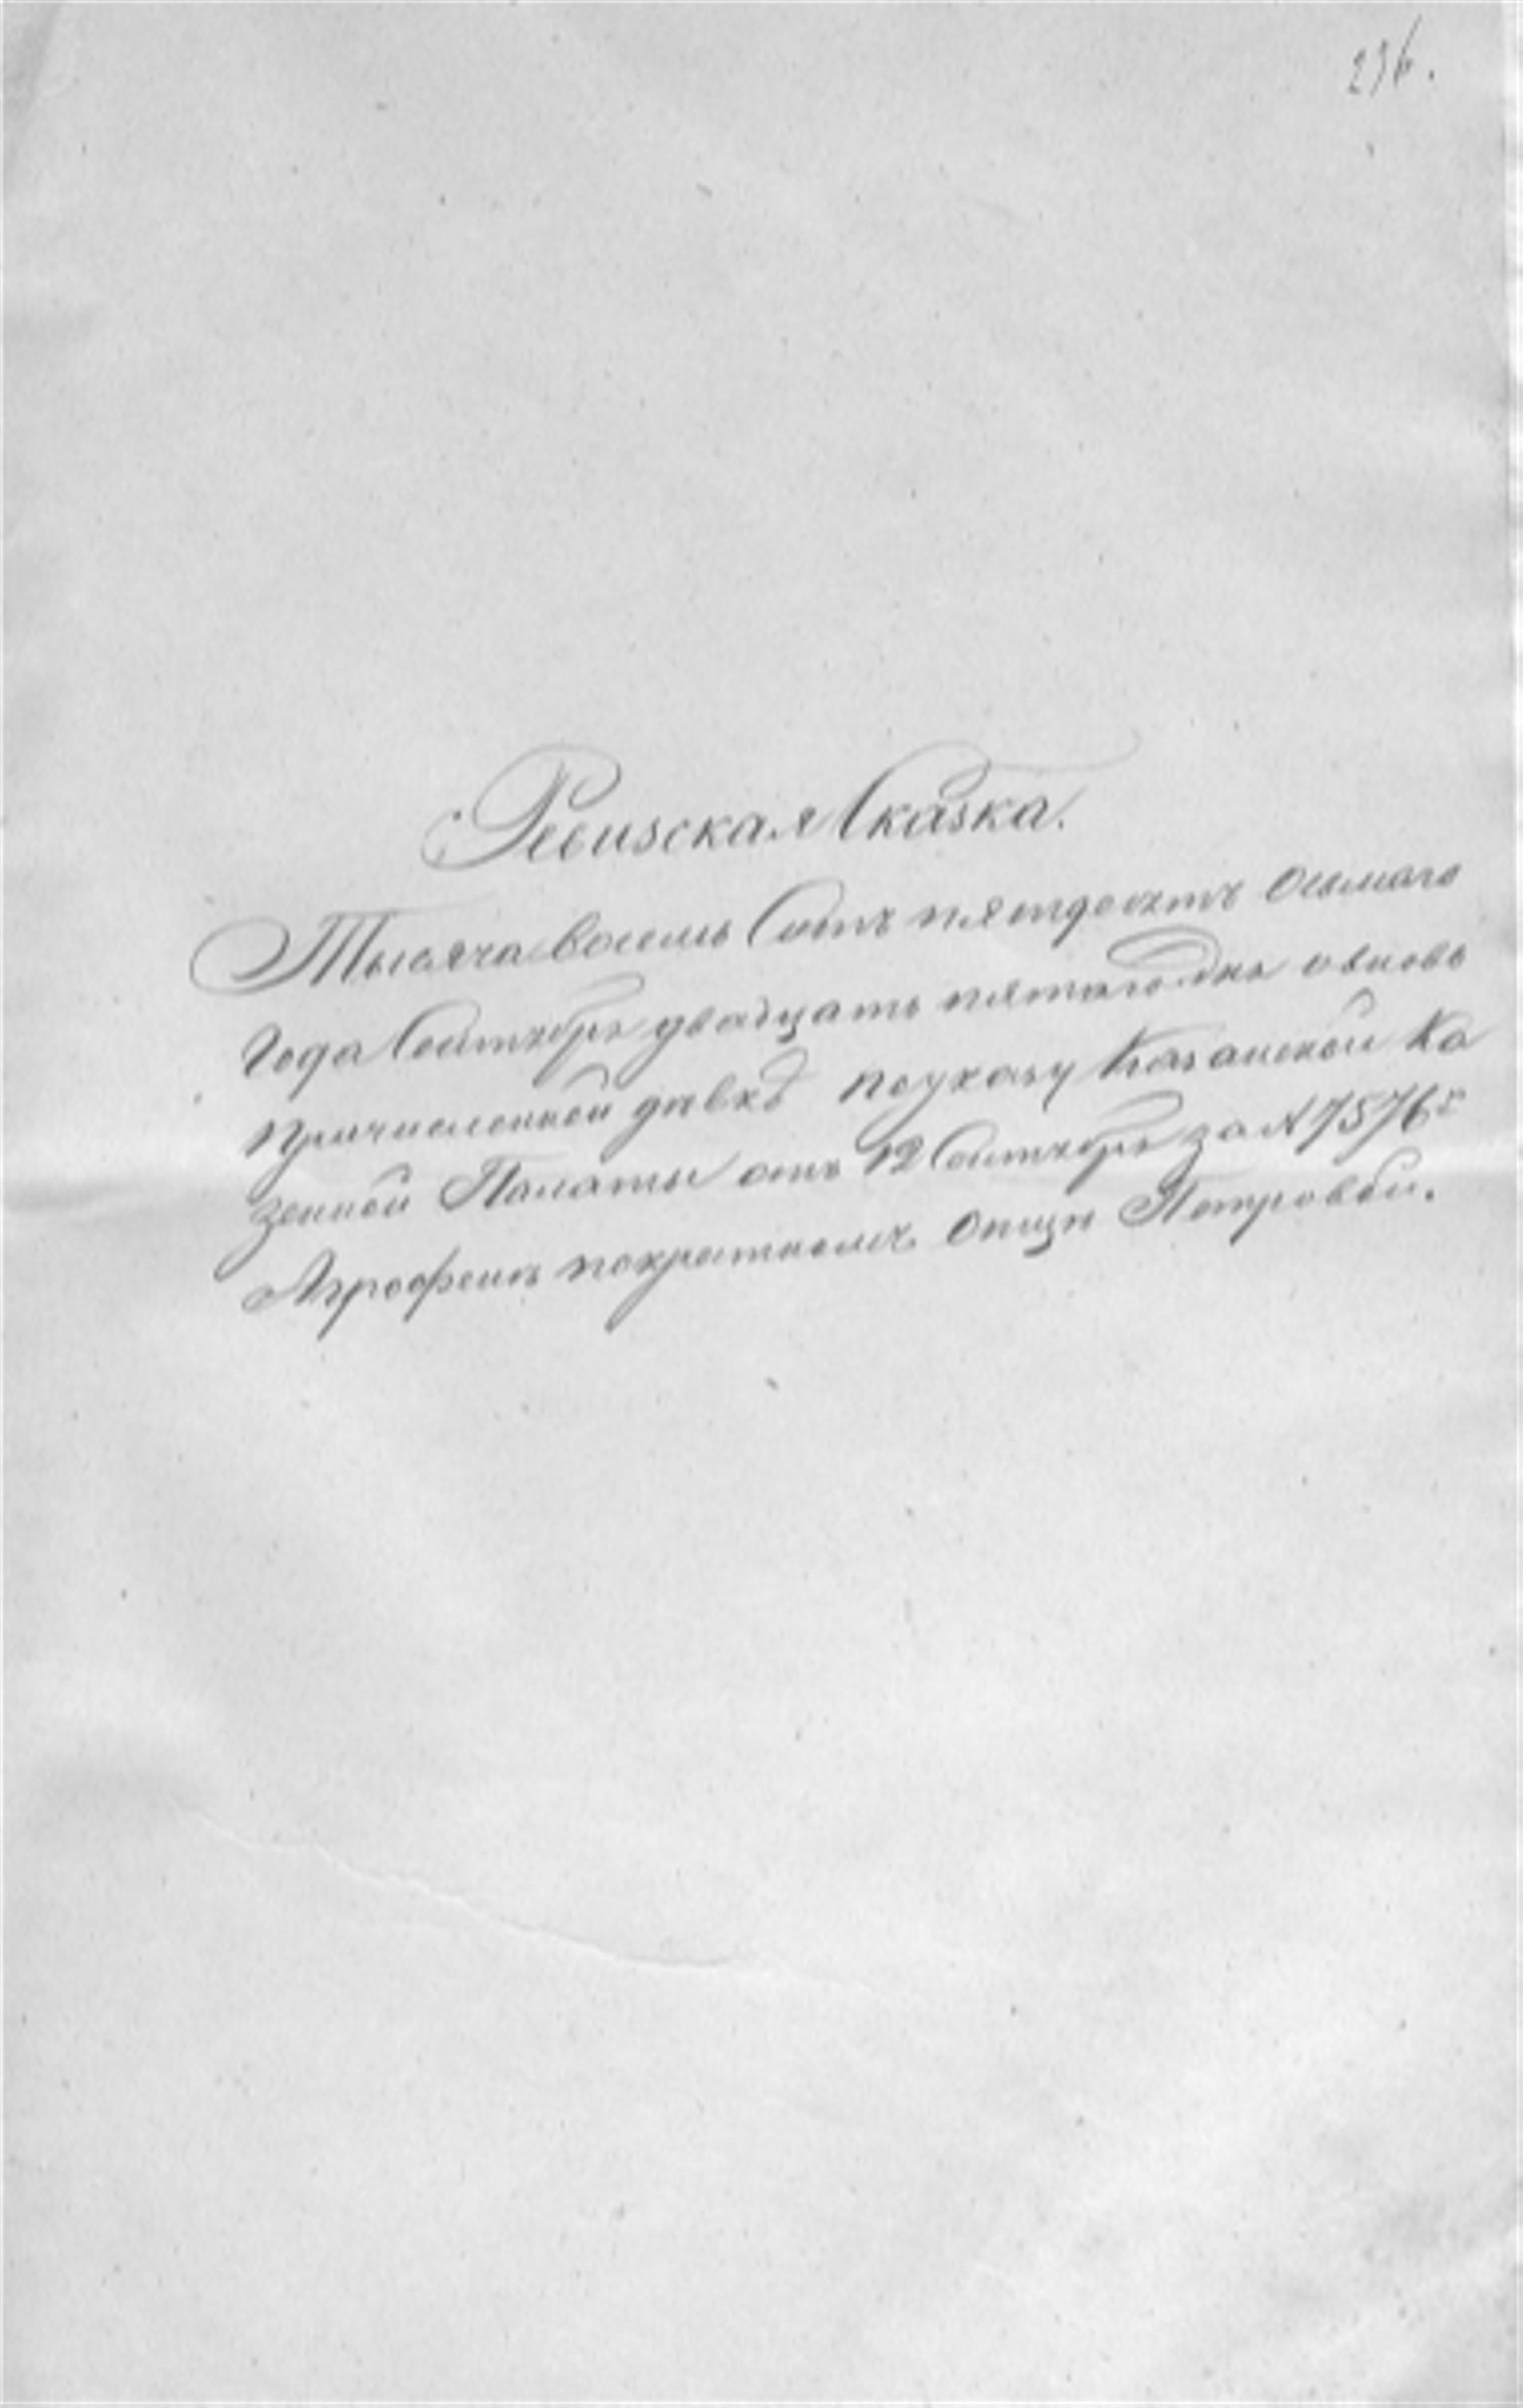 236.
Ревизская Сказка.
Тысяча восемь Сотъ пятдесятъ осьмаго
Года Сентября двадцать пятаго дня овновь
Причисленной девкѣ поуказу Казанской Ка
зенной Палаты отъ 12 Сентября за № 7576ъ
Агрофенѣ покрестномъ отцѣ Петровой.